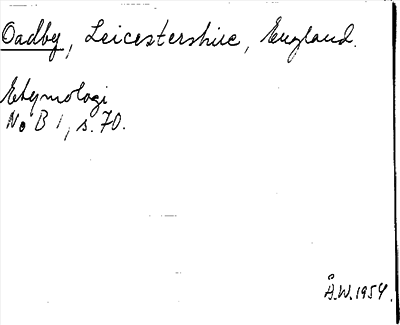 Oadby, Leicestershire, England.
Etymologi
No B 1, s. 70.
Å.W. 1954.